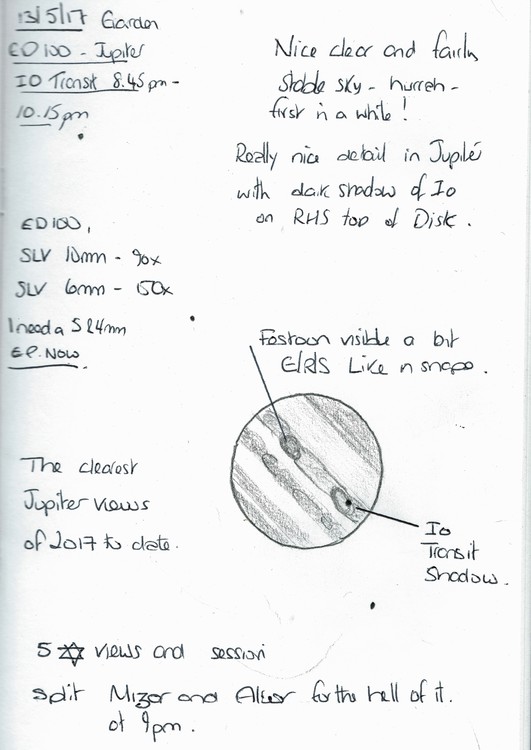 13/5/17 Garden
ED100 - Jupiter
IO Transit 8.45pm -
10.15pm
Nice clear and fairly
stable sky - hurrah -
first in a while!
Really nice detail in Jupiter
with dark shadow of Io
on RHS top of Disk.
ED100,
SLV 10mm - 90x
SLV 6mm - 150x
I need a 5 &4mm
EP. NOW.
Festoon visible a bit
Like n shape.
The clearest
Jupiter views
of 2017 to date.
Io
Transit
Shadow.
5 views and session
Split Mizar and Alcor for the hell of it.
at 9pm.